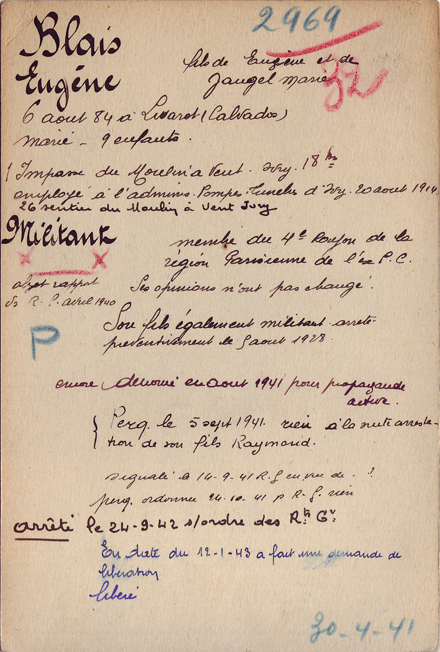 2969
Blais
Eugène
fils de Eugène et de
Jaugel Marie
32
6 aout 84 à Livarot (Calvados)
marié - 9 enfants.
Impasse du Moulin à Vent. Ivry. 18 bis
employé à l'admins. Pompes Funèbres d'Ivry. 20 aout 1914
26 sentier du Moulin à Vent Ivry
Militant
membre du 4e Rayon de la
région Parisienne de l'ex P.C.
objet rappt
R.G. avril 1940
Ses opinions n'ont pas changé.
P
Son fils également militant arrêté
préventivement le 5 aout 1928
encore dénoncé en aout 1941 pour propagande
active.
Perq. le 5 sept 1941. rien à la suite arresta-
tion de son fils Raymond.
signalé le 14-9-41 R.G en vue de - ?
perq. ordonnée 24-10-41 p R.G. rien
arrêté le 24-9-42 s/ordre des Rts Gx
En date du 12-1-43 a fait une demande de
libération
libéré
30-4-41